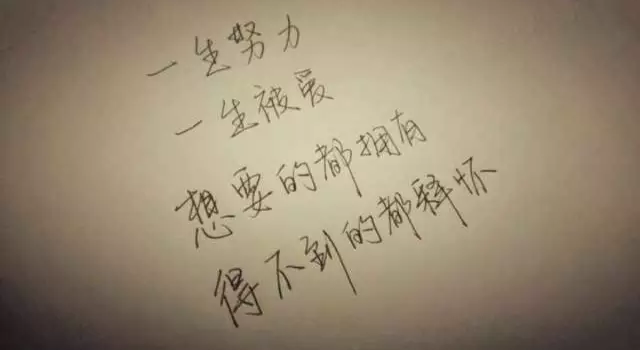 一生努力
一生被爱
想要的都拥有
得不到的都释怀